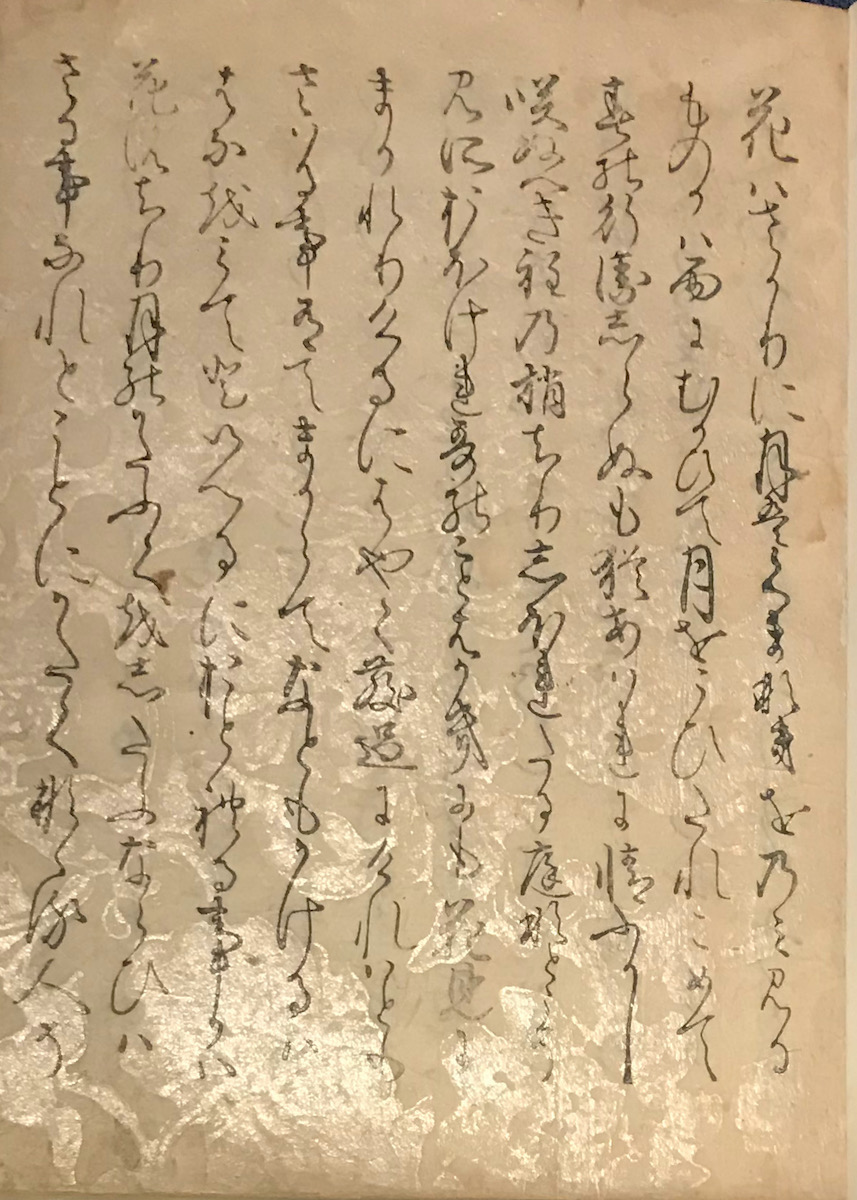 花ハさかりに月はくまなきをのミ見る
ものかハ雨にむかひて月をこひたれこめて
春の行衛しらぬも猶あハれに情ふかし
咲ぬへき程の梢ちりしほれたる庭なとこそ
見所おほけれ哥のことはかきにも花見に
まかれりけるにはやく散過にけれハとも
さハる事有てまからてなともかけるハ
はなをみてといへるにおとれる事かハ
花のちり月のかたふくをしたふならひハ
さる事なれとことにかたくなゝる人そ